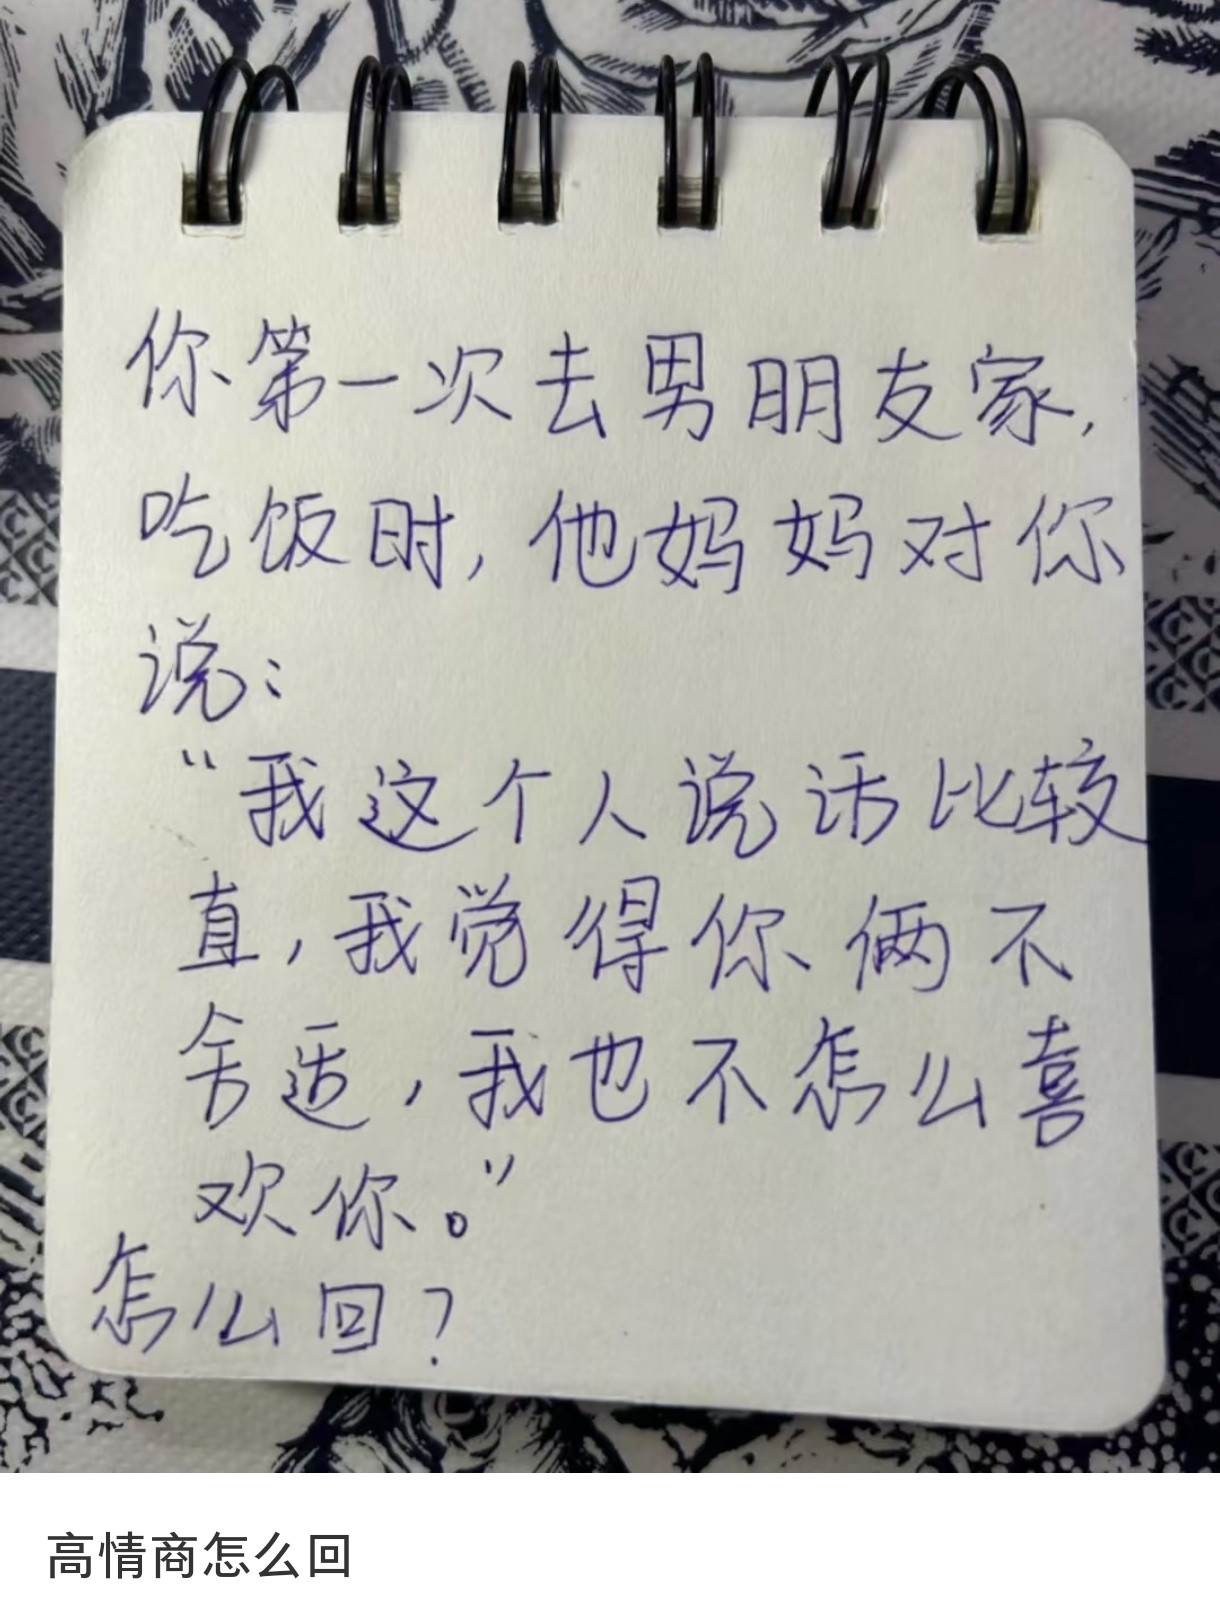 你第一次去男朋友家，
吃饭时，他妈妈对你
说：
“我这个人说话比较
直，我觉得你俩不
合适，我也不怎么喜
欢你。”
怎么回？
高情商怎么回